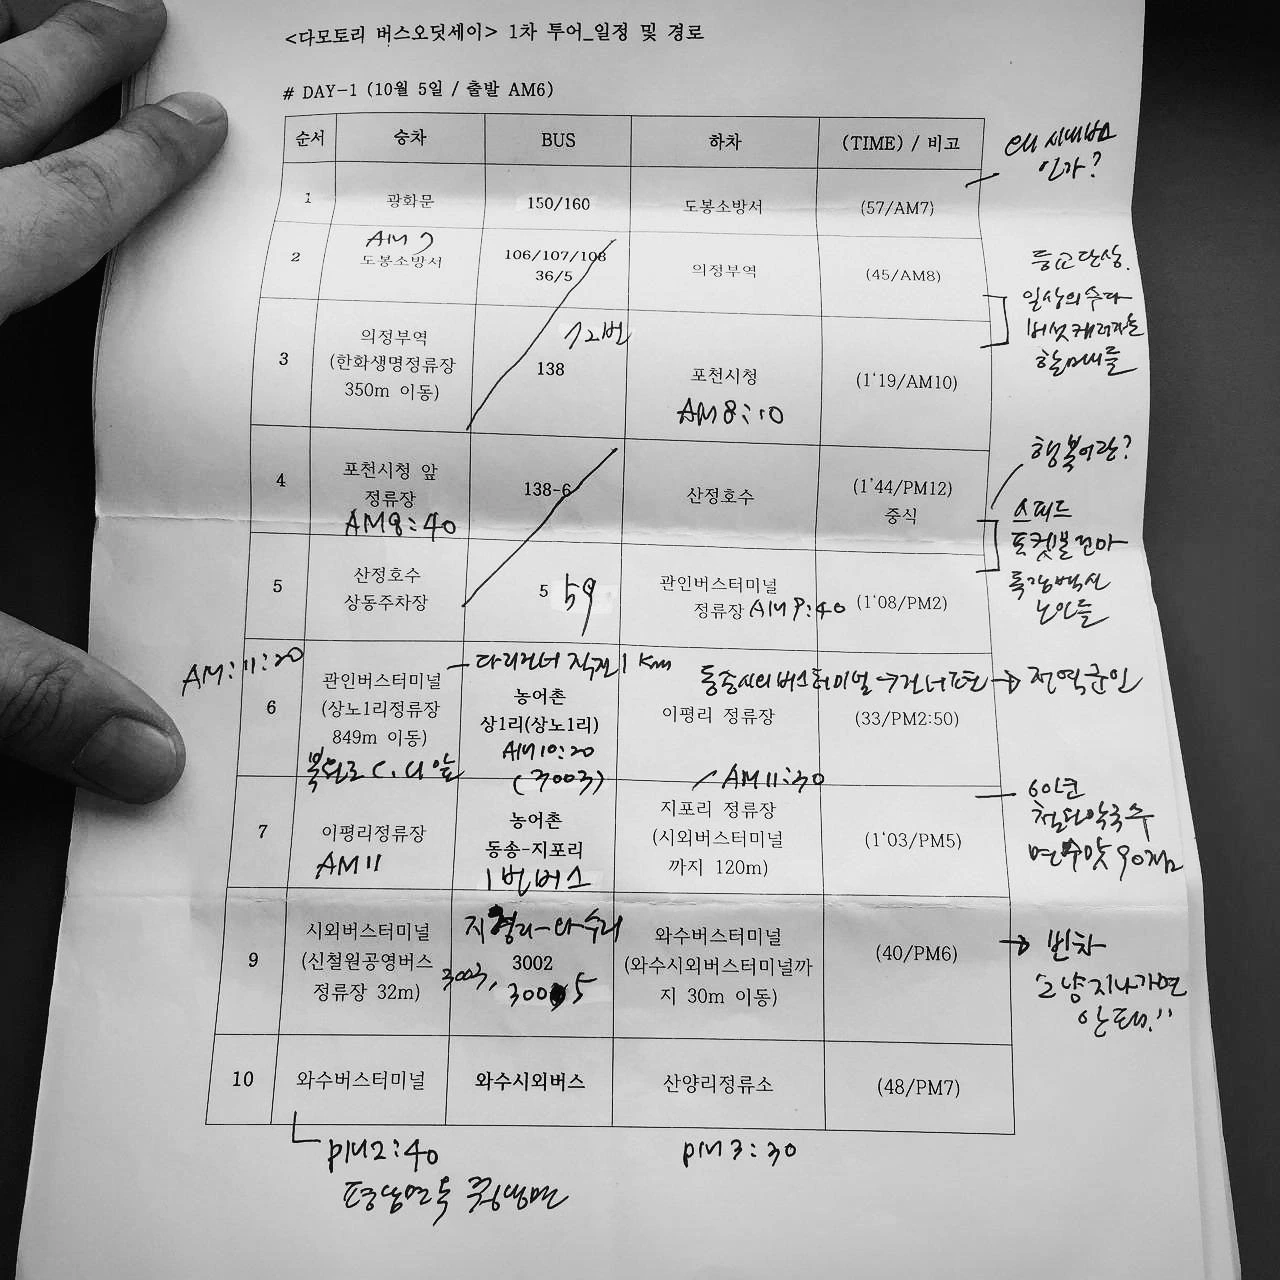 <다모토리 버스오딧세이> 1차 투어_일정 및 경로
# DAY-1 (10월 5일 / 출발 AM6)
순서 승차 BUS 하차 (TIME) / 비고
왜 시내버스
인가?
1 광화문 150/160 도봉소방서 (57/AM7)
AM 7
2 도봉소방서 106/107/108 의정부역 (45/AM8)
36/5
등교단상.
일상의 수다
버섯캐러가는
할머니들
72번
3 의정부역 138 포천시청 (1'19/AM10)
(한화생명정류장
350m 이동)
AM 8:10
행복이란?
4 포천시청 앞 138-6 산정호수 (1'44/PM12)
정류장 중식
AM8:40
스피드
포켓볼
노인들
5 산정호수 5 59 관인버스터미널 (1'08/PM2)
상동주차장 정류장 AM 9:40
AM:11:20
다리건너 직진 1 Km
동송시외버스터미널 → 건너편 → 전역군인
6 관인버스터미널 농어촌 이평리 정류장 (33/PM2:50)
(상노1리정류장 상1리(상노1리)
849m 이동) AM10:20
앞 (3003)
AM 11:30
7 이평리정류장 농어촌 지포리 정류장 (1'03/PM5)
AM 11 동송-지포리 (시외버스터미널
1번버스 까지 120m)
60년
철원막국수
9 시외버스터미널 3002 와수버스터미널 (40/PM6)
(신철원공영버스 3003, 3005 (와수시외버스터미널까
정류장 32m) 지 30m 이동)
→ 빈차
그냥 지나가면
안돼.!!
10 와수버스터미널 와수시외버스 산양리정류소 (48/PM7)
PM2:40 PM 3:30